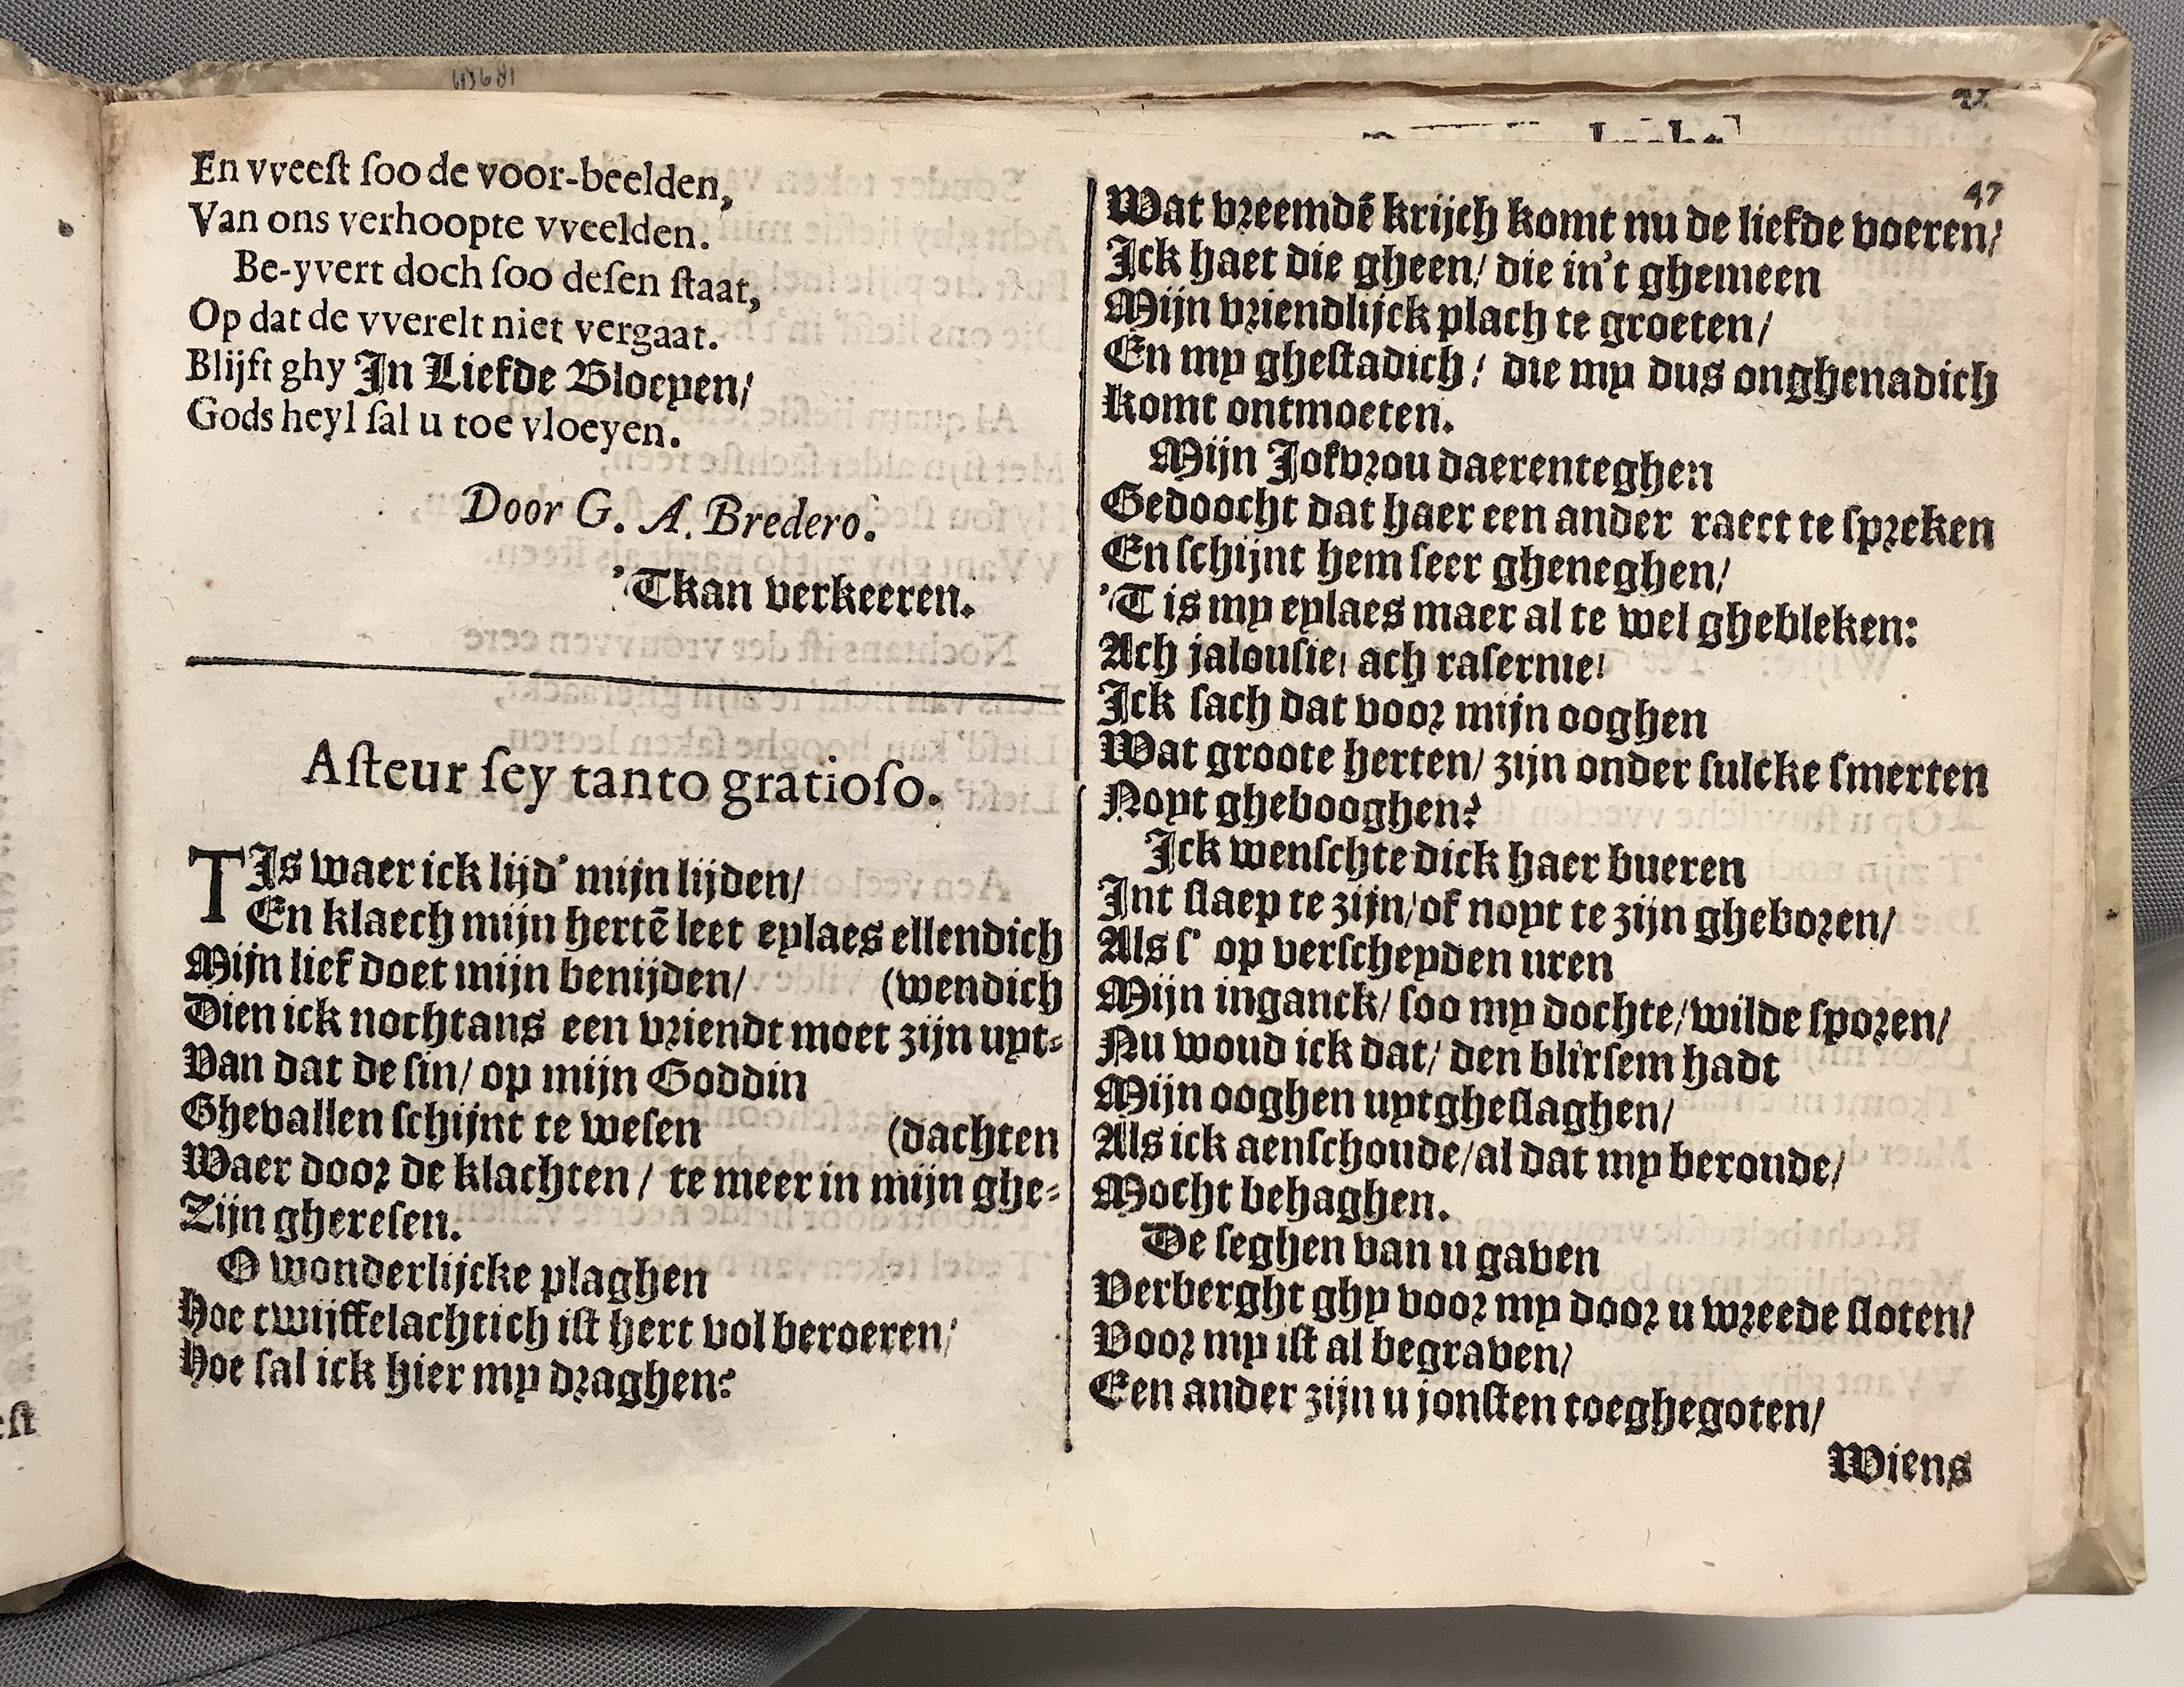 En vveeſt ſoo de voor-beelden,
Van ons verhoopte vveelden.
Be-yvert doch ſoo deſen ſtaat,
Op dat de vverelt niet vergaat.
Blijft ghy In Liefde Bloeyen/
Gods heyl ſal u toe vloeyen.
Door G. A. Bredero.
'Tkan verkeeren.
Aſteur ſey tanto gratioſo.
TIs waer ick lijd' mijn lijden/
En klaech mijn hertē leet eylaes ellendich
Mijn lief doet mijn benijden/ (wendich
Dien ick nochtans een vriendt moet zijn uyt-
Van dat de ſin/ op mijn Goddin
Ghevallen ſchijnt te weſen (dachten
Waer door de klachten/ te meer in mijn ghe-
Zijn ghereſen.
O wonderlijcke plaghen
Hoe twijffelachtich iſt hert vol beroeren/
Hoe ſal ick hier my draghen?
47
Wat vreemdē krijch komt nu de liefde voeren/
Ick haet die gheen/ die in't ghemeen
Mijn vriendlijck plach te groeten/
En my gheſtadich/ die my dus onghenadich
komt ontmoeten.
Mijn Jofvrou daerenteghen
Gedoocht dat haer een ander raect te ſpreken
En ſchijnt hem ſeer gheneghen/
'T is my eylaes maer al te wel ghebleken:
Ach jalouſie/ ach raſernie/
Ick ſach dat voor mijn ooghen
Wat groote herten/ zijn onder ſulcke ſmerten
Noyt ghebooghen?
Ick wenſchte dick haer bueren
Int ſlaep te zijn/ of noyt te zijn gheboren/
Als ſ' op verſcheyden uren
Mijn inganck/ ſoo my dochte/ wilde ſporen/
Nu woud ick dat/ den blixſem hadt
Mijn ooghen uytgheſlaghen/
Als ick aenſchoude/ al dat my beroude/
Mocht behaghen.
De ſeghen van u gaven
Verberght ghy voor my door u wreede ſloten/
Voor my iſt al begraven/
Een ander zijn u jonſten toeghegoten/
Wiens